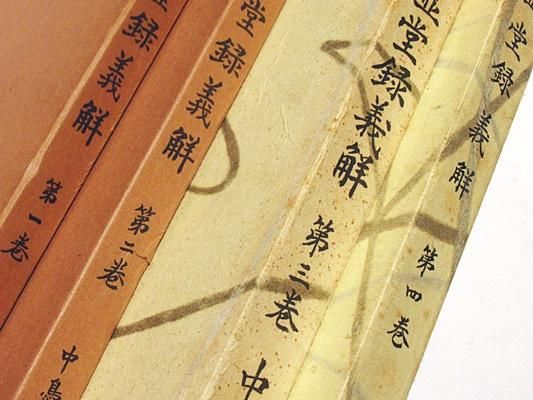 録義觧 第一巻
堂録義觧 第二巻 中
堂録義觧 第三巻 中
堂録義觧 第四巻